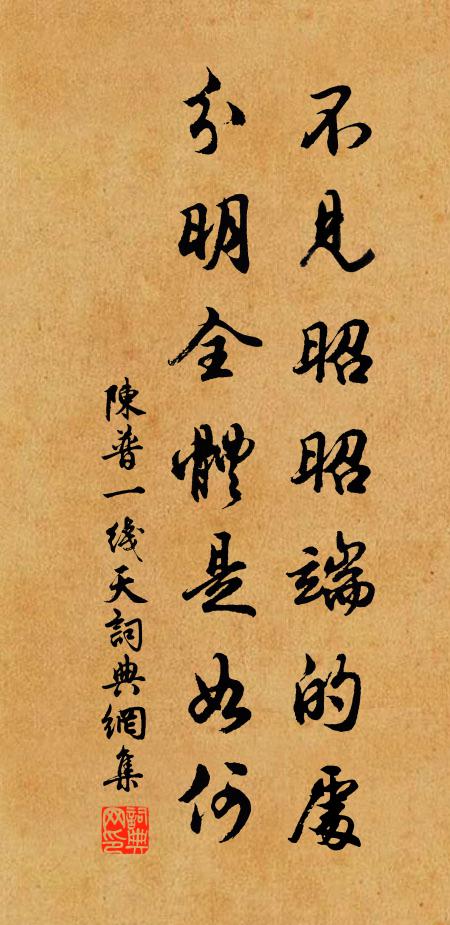 不見昭昭端的處
分明全體是如何
陳普一线天詞典網集
詞典网印